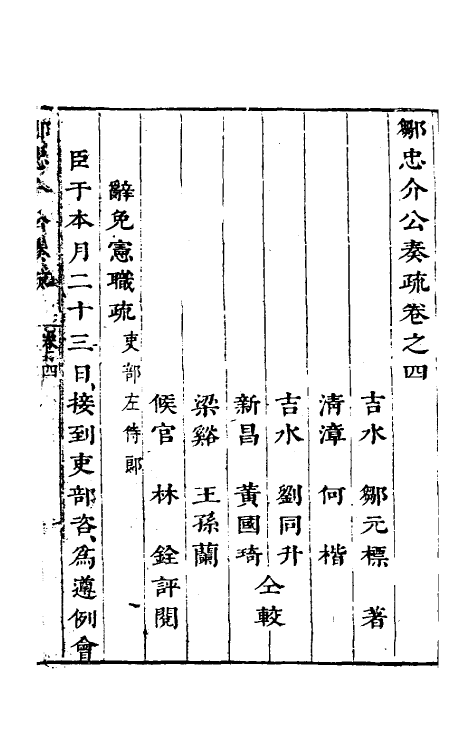 鄒忠介公奏疏卷之四
吉水 鄒元標 著
清漳 何楷
吉水 劉同升
新昌 黃國琦 仝較
梁谿 王孫蘭
候官 林銓評閱
辭免憲職疏 吏部左侍郎
臣于本月二十三日、接到吏部咨、爲遵例會
卷之四